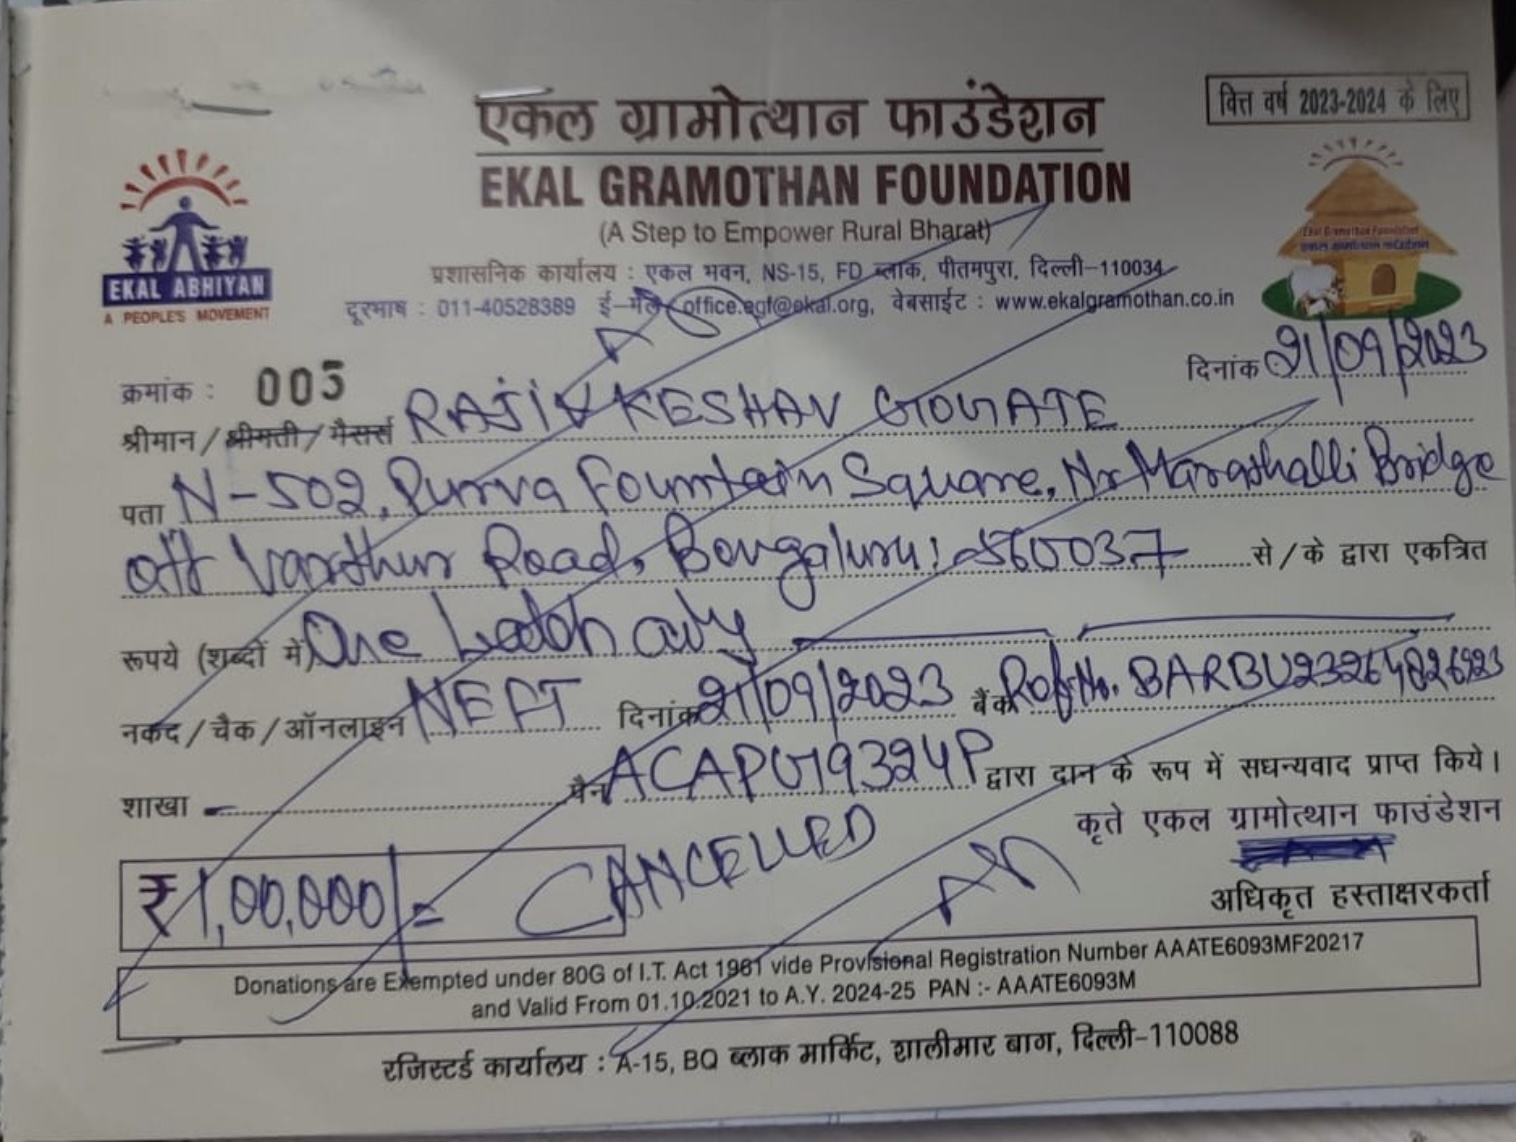 एकल ग्रामोत्थान फाउंडेशन
वित्त वर्ष 2023-2024 के लिए
EKAL GRAMOTHAN FOUNDATION
(A Step to Empower Rural Bharat)
EKAL ABHIYAN
A PEOPLE'S MOVEMENT
Ekal Gramothan Foundation
एकल ग्रामोत्थान फाउंडेशन
प्रशासनिक कार्यालय : एकल भवन, NS-15, FD ब्लाक, पीतमपुरा, दिल्ली-110034
दूरभाष : 011-40528389 ई-मेल office.egf@ekal.org, वेबसाईट : www.ekalgramothan.co.in
क्रमांक : 005 दिनांक 21/09/2023
श्रीमान / श्रीमती / मैसर्स RAJIV KESHAV GOGATE
पता N-502, Purva Fountain Square, Nr Marathalli Bridge
off Varthur Road, Bengaluru: 560037 से / के द्वारा एकत्रित
रूपये (शब्दों में) One Lakh only
नकद / चैक / ऑनलाइन NEFT दिनांक 21/09/2023 बैंक Ref No. BARBU23264826923
शाखा - पैन ACAPG9324P द्वारा दान के रूप में सधन्यवाद प्राप्त किये।
कृते एकल ग्रामोत्थान फाउंडेशन
₹ 1,00,000/= CANCELLED
अधिकृत हस्ताक्षरकर्ता
Donations are Exempted under 80G of I.T. Act 1961 vide Provisional Registration Number AAATE6093MF20217
and Valid From 01.10.2021 to A.Y. 2024-25 PAN :- AAATE6093M
रजिस्टर्ड कार्यालय : A-15, BQ ब्लाक मार्किट, शालीमार बाग, दिल्ली-110088